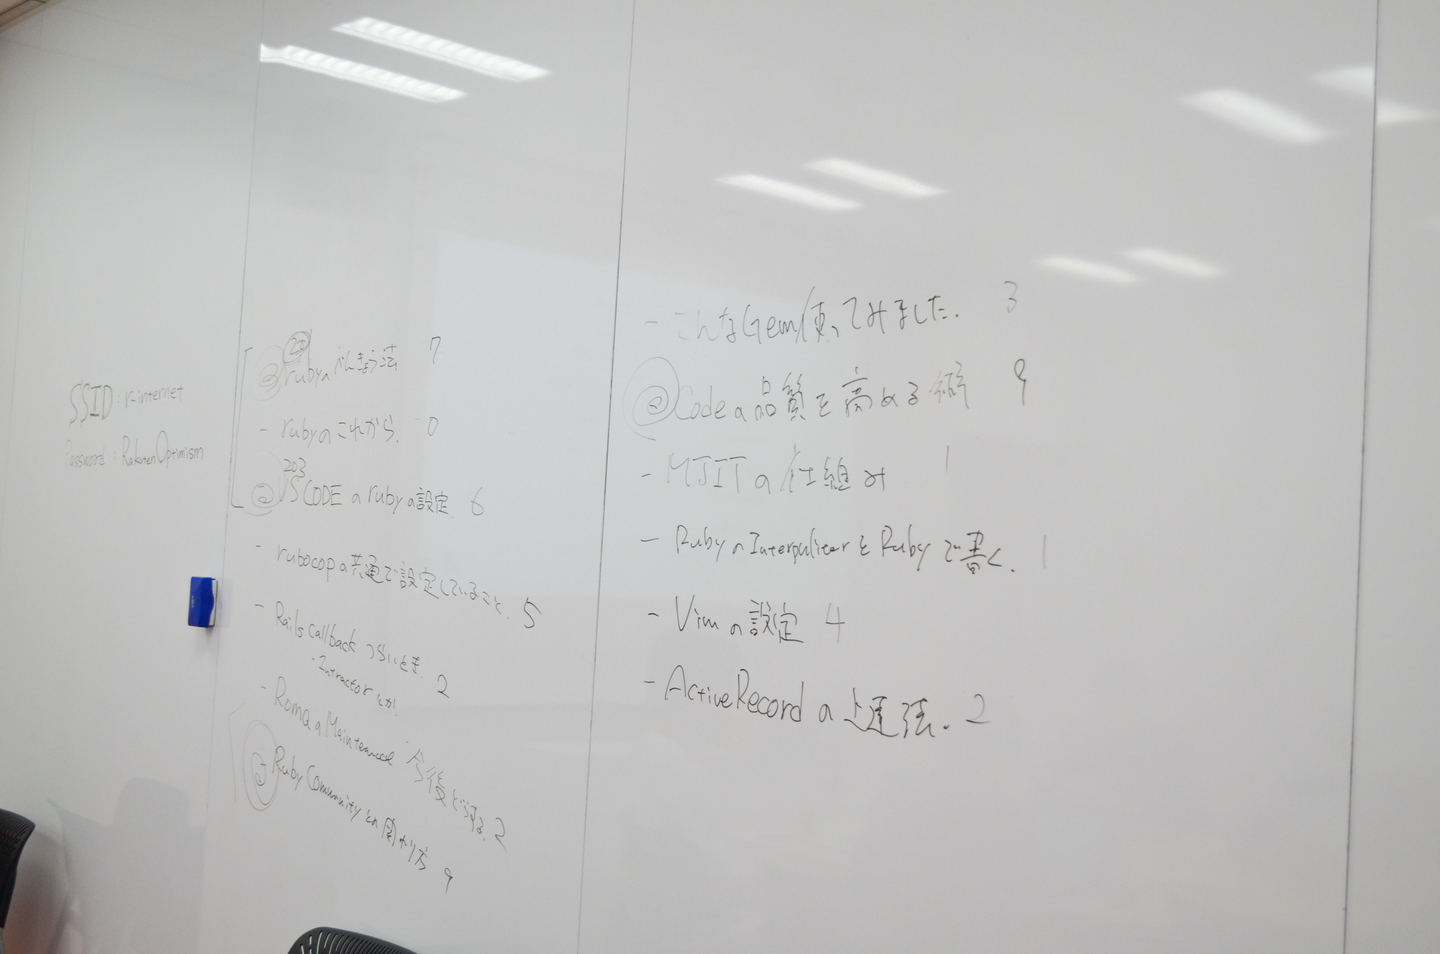 SSID: r-internet
Password: RakutenOptimism
② rubyのべんきょう法 7
- rubyのこれから. 0
203
② VSCODEのrubyの設定. 6
- rubocopの共通で設定していること. 5
- Rails callback つらいとき. 2
・Intractorとか.
- RomaのMaintenance 今後どうする. 2
RubyCommunityとの関わり方 9
- こんなGem使ってみました. 3
② Codeの品質を高める術 9
- MJITの仕組み 1
- RubyのInterpuliterをRubyで書く. 1
- Vimの設定 4
- ActiveRecordの上達法. 2